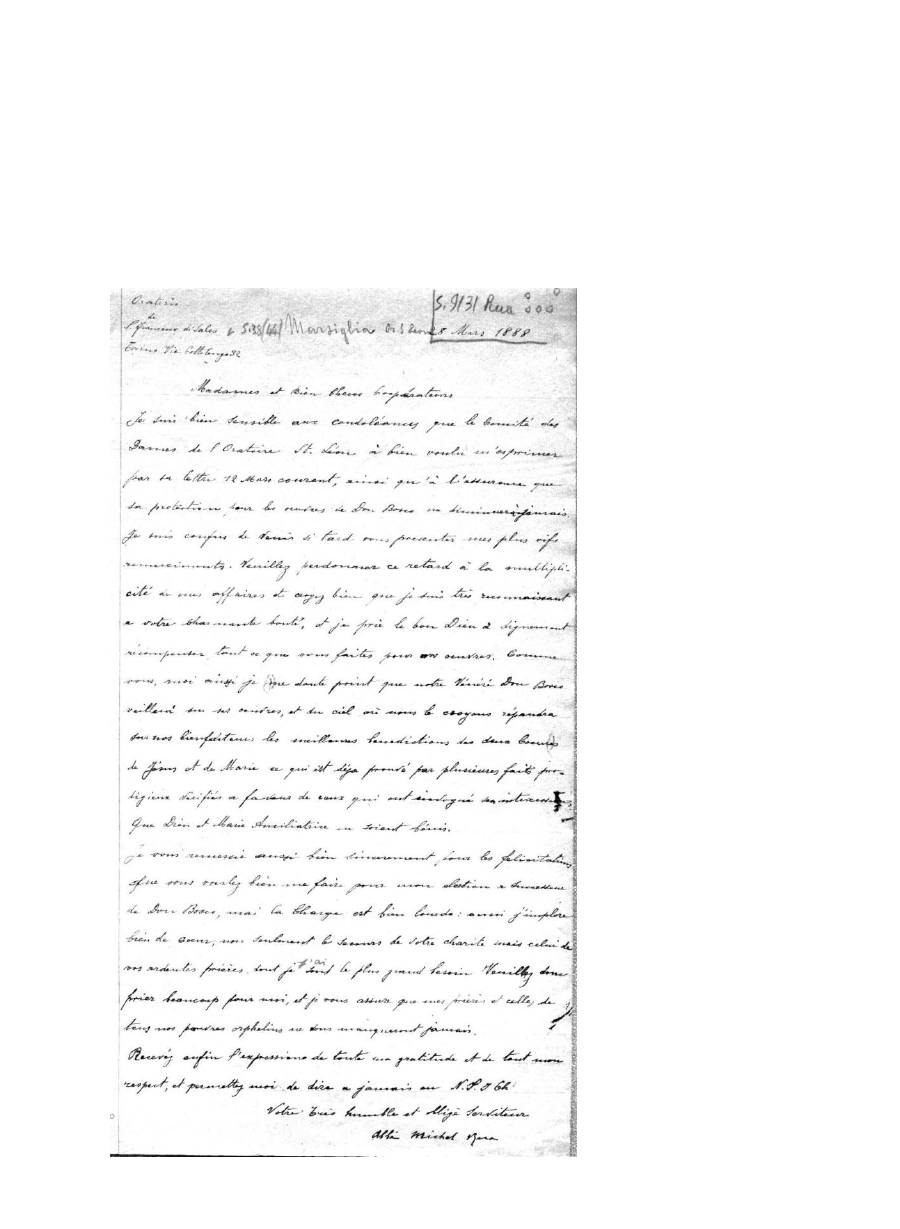 Oratorio
di
S. Francesco di Sales
Torino Via Cottolengo 32
S.9131 Rua
S.38(44) Marsiglia Or. S Leone 8 Mars 1888
Madames et Bien Chères Coopérateurs
Je suis bien sensible aux condoléances que le Comité des
Dames de l'Oratoire St. Léon à bien voulu m'esprimer
par sa lettre 12 Mars courent, ainsi qu'à l'assurance que
sa protection pour les œuvres de Don Bosco ne diminuera jamais.
Je suis confus de venir si tard vous presenter mes plus vifs
remerciments. Veuillez perdonner ce retard à la multipli-
cité de mes affaires et croyez bien que je suis très reconnaissant
a votre charmante bonté, et je prie le bon Dieu à dignement
récompenser tout ce que vous faites pour nos œuvres. Comme
vous, moi aussi je ne doute point que notre Vénéré Don Bosco
veillera sur ses œuvres, et du ciel où nous le croyons répandra
sur nos bienfaiteurs les meilleures benedictions des deux Cœurs
de Jésus et de Marie ce qui est déja prouvé par plusieures faits pro-
digieux vérifiés a faveur de ceux qui ont invoqué son intercession
Que Dieu et Marie Auxiliatrice en soient bénis.
Je vous remercie aussi bien sincerement pour les felicitations
que vous voulez bien me faire pour mon election a successeur
de Don Bosco, mai la Charge est bien lourde: aussi j'implore
bien de cœur, non seulment le secours de votre charité mais celui de
vos ardentes prières, dont j'ai le plus grand besoin Veuillez donc
prier beaucoup pour moi, et je vous assure que mes prières et celles de
tous nos pauvres orphelins ne vous manqueront jamais.
Recevéz enfin l'expressione de toute ma gratitude et de tout mon
respect, et permettez moi de dire a jamais en N.S.J.Ch.
Votre très humble et obligé Serviteur
Abbé Michel Rua